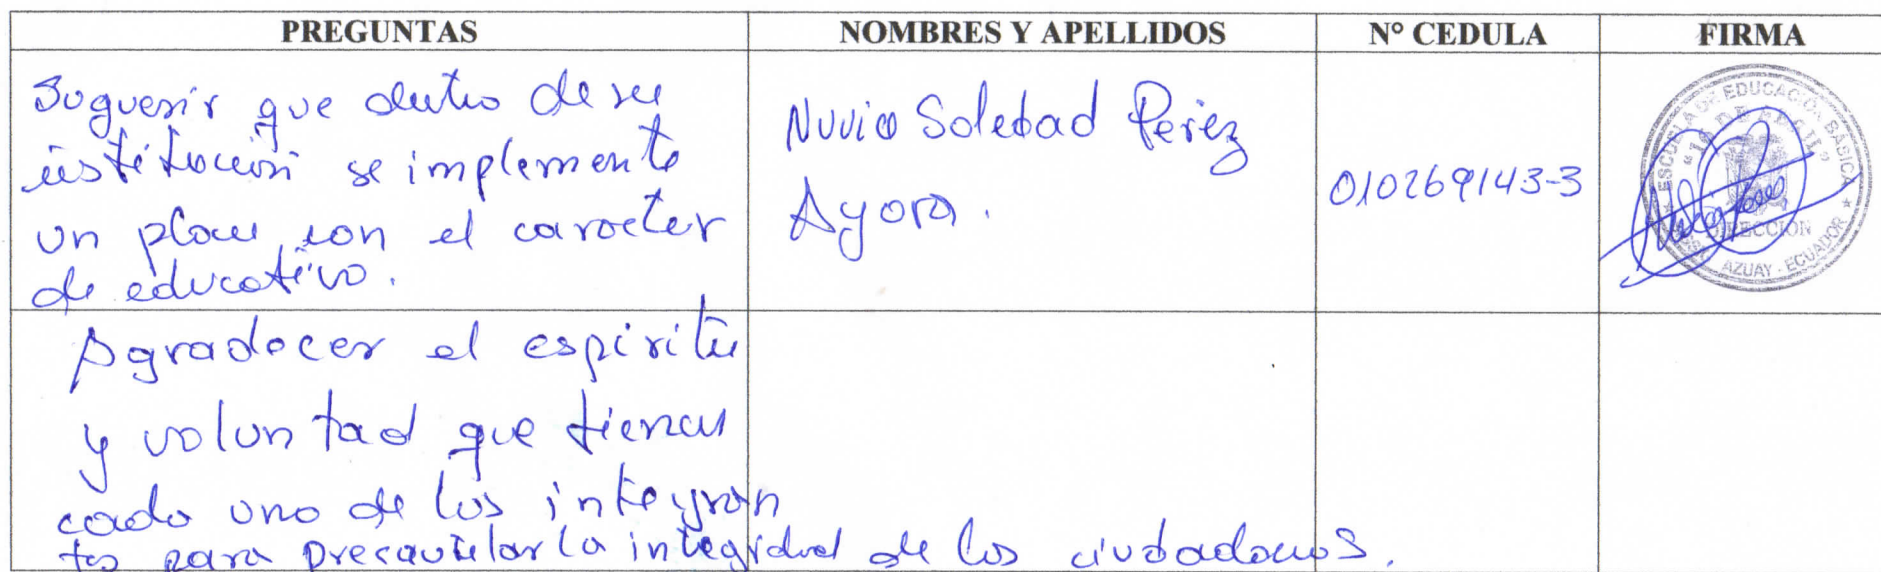 PREGUNTAS NOMBRES Y APELLIDOS N° CEDULA FIRMA
Suguerir que dentro de su
institución se implemente
un plan con el caracter
de educativo.
Nuvia Soledad Peréz
Ayora.
010269143-3
ESCUELA DE EDUCACIÓN BÁSICA
DIRECCIÓN
AZUAY - ECUADOR
Agradecer el espiritu
y voluntad que tienen
cada uno de los integran
tes para precautelar la integridad de los ciudadanos.